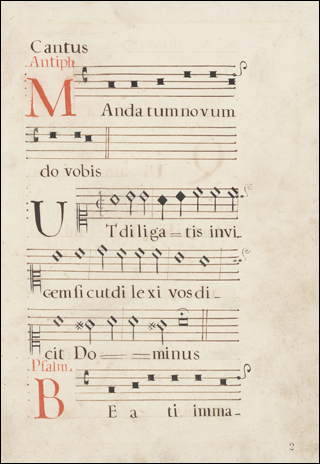 Cantus
Antiph.
MAndatum novum
do vobis
UT diliga_tis invi_
cem sicut dilexi vos di_
cit Do_ _minus
Psalm.
BEati imma_
2